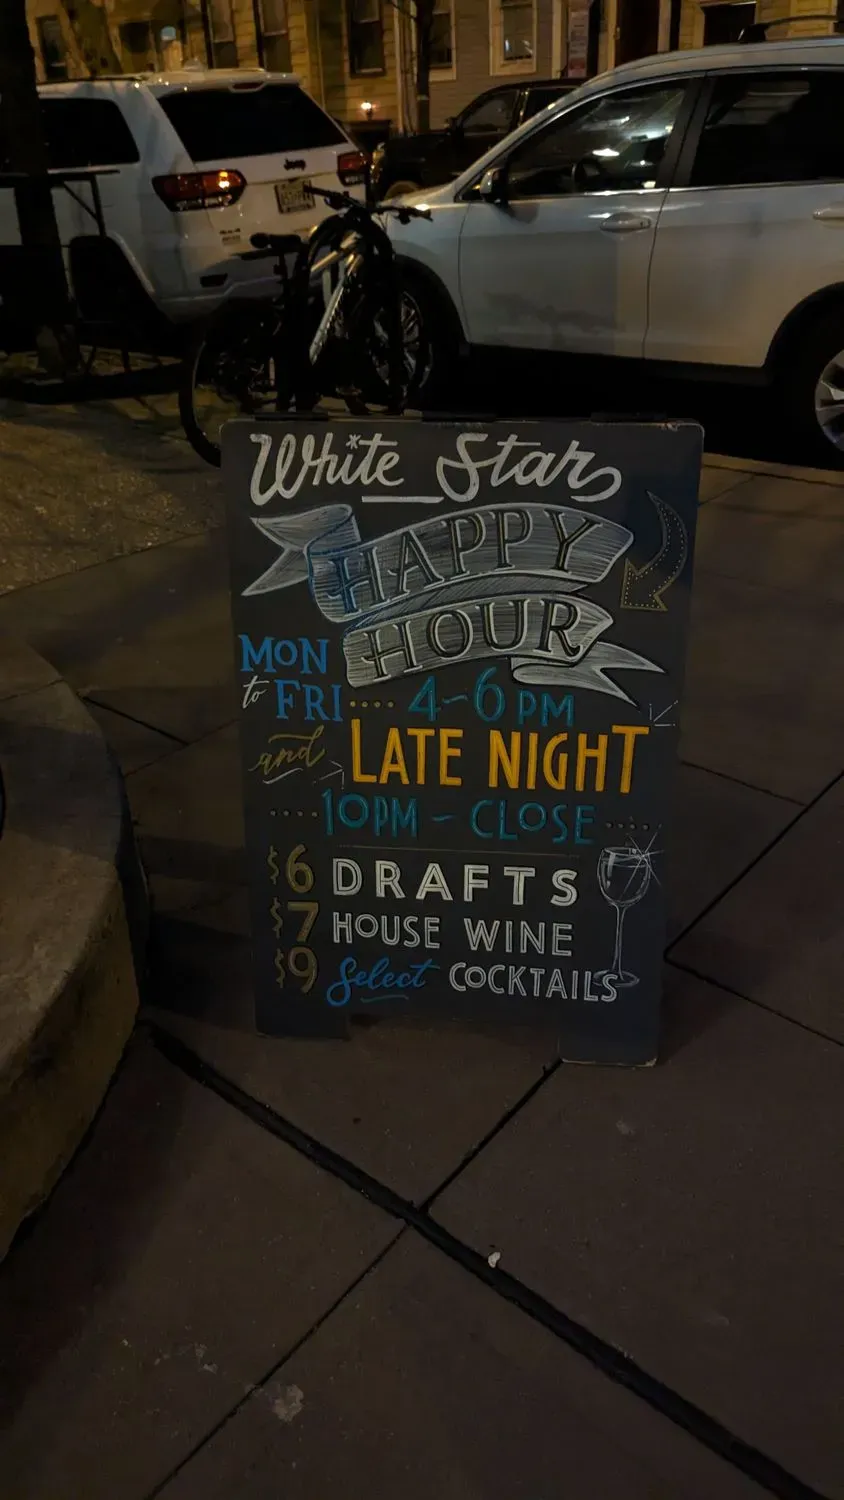 White Star
HAPPY
HOUR
MON
to FRI .... 4-6 PM
and LATE NIGHT
.... 10PM - CLOSE ....
$6 DRAFTS
$7 HOUSE WINE
$9 Select COCKTAILS
Jeep